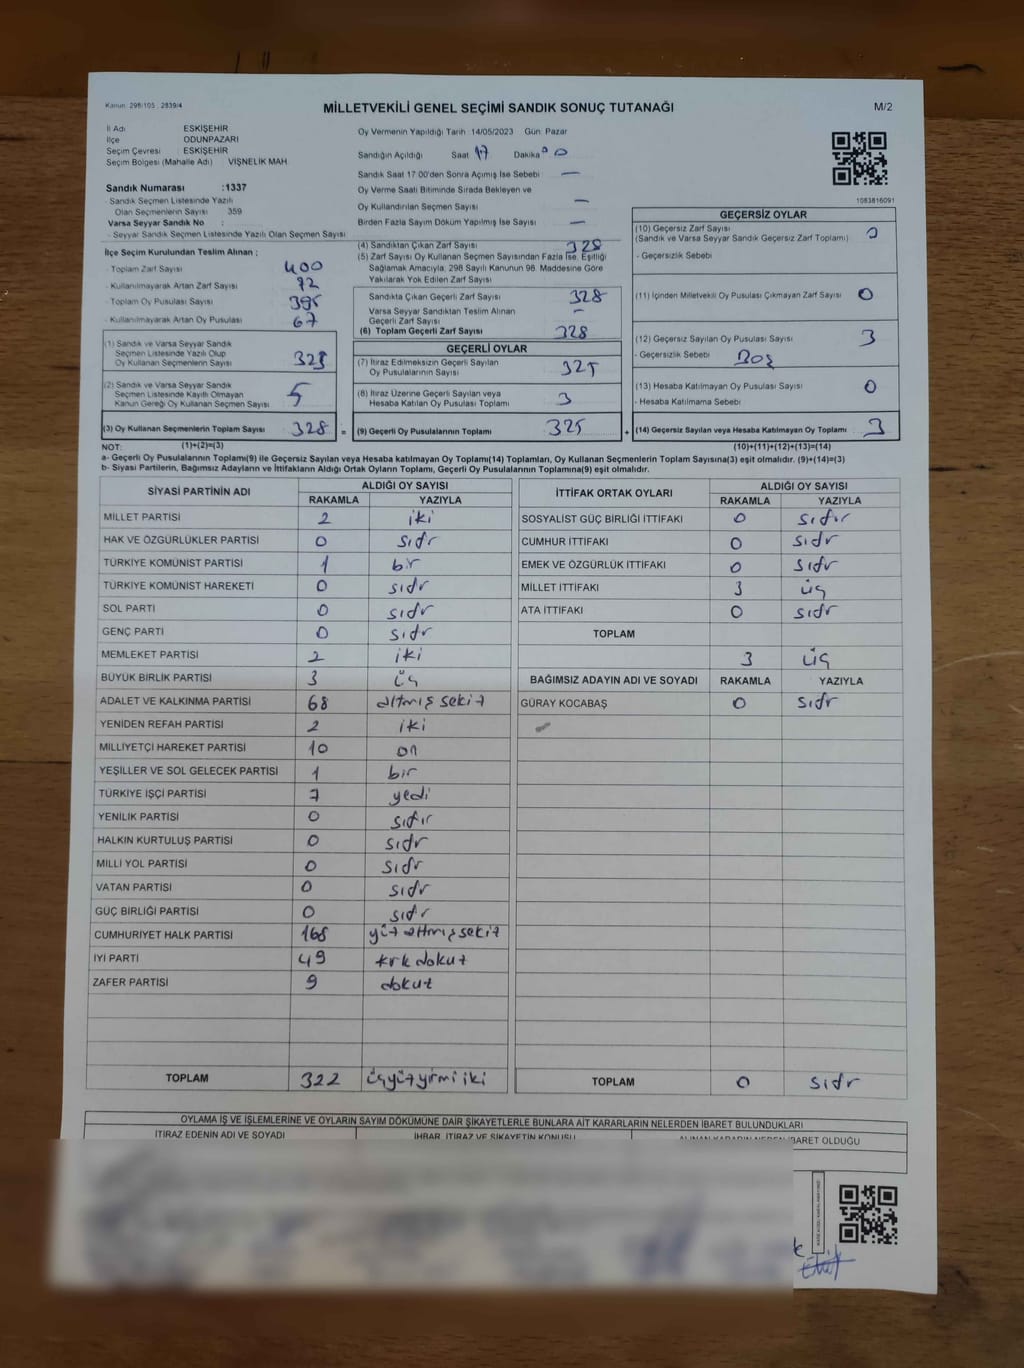 Kanun: 298/105 , 2839/4
MİLLETVEKİLİ GENEL SEÇİMİ SANDIK SONUÇ TUTANAĞI
M/2
İl Adı ESKİŞEHİR
İlçe ODUNPAZARI
Seçim Çevresi ESKİŞEHİR
Seçim Bölgesi (Mahalle Adı) VİŞNELİK MAH.
Sandık Numarası :1337
- Sandık Seçmen Listesinde Yazılı
Olan Seçmenlerin Sayısı 359
Varsa Seyyar Sandık No :
- Seyyar Sandık Seçmen Listesinde Yazılı Olan Seçmen Sayısı
Oy Vermenin Yapıldığı Tarih 14/05/2023 Gün: Pazar
Sandığın Açıldığı Saat 17 Dakika 00
Sandık Saat 17:00'den Sonra Açılmış İse Sebebi —
Oy Verme Saati Bitiminde Sırada Bekleyen ve
Oy Kullandırılan Seçmen Sayısı —
Birden Fazla Sayım Döküm Yapılmış İse Sayısı —
1083816091
İlçe Seçim Kurulundan Teslim Alınan ;
- Toplam Zarf Sayısı 400
- Kullanılmayarak Artan Zarf Sayısı 72
- Toplam Oy Pusulası Sayısı 395
- Kullanılmayarak Artan Oy Pusulası 67
(1) Sandık ve Varsa Seyyar Sandık
Seçmen Listesinde Yazılı Olup
Oy Kullanan Seçmenlerin Sayısı 323
(2) Sandık ve Varsa Seyyar Sandık
Seçmen Listesinde Kayıtlı Olmayan
Kanun Gereği Oy Kullanan Seçmen Sayısı 5
(3) Oy Kullanan Seçmenlerin Toplam Sayısı 328 =
(4) Sandıktan Çıkan Zarf Sayısı 328
(5) Zarf Sayısı Oy Kullanan Seçmen Sayısından Fazla İse, Eşitliği
Sağlamak Amacıyla; 298 Sayılı Kanunun 98. Maddesine Göre
Yakılarak Yok Edilen Zarf Sayısı
Sandıkta Çıkan Geçerli Zarf Sayısı 328
Varsa Seyyar Sandıktan Teslim Alınan
Geçerli Zarf Sayısı —
(6) Toplam Geçerli Zarf Sayısı 328
GEÇERLİ OYLAR
(7) İtiraz Edilmeksizin Geçerli Sayılan
Oy Pusulalarının Sayısı 325
(8) İtiraz Üzerine Geçerli Sayılan veya
Hesaba Katılan Oy Pusulası Toplamı 3
(9) Geçerli Oy Pusulalarının Toplamı 325 +
GEÇERSİZ OYLAR
(10) Geçersiz Zarf Sayısı 0
(Sandık ve Varsa Seyyar Sandık Geçersiz Zarf Toplamı)
- Geçersizlik Sebebi
(11) İçinden Milletvekili Oy Pusulası Çıkmayan Zarf Sayısı 0
(12) Geçersiz Sayılan Oy Pusulası Sayısı 3
- Geçersizlik Sebebi Boş
(13) Hesaba Katılmayan Oy Pusulası Sayısı 0
- Hesaba Katılmama Sebebi
(14) Geçersiz Sayılan veya Hesaba Katılmayan Oy Toplamı 3
NOT: (1)+(2)=(3) (10)+(11)+(12)+(13)=(14)
a- Geçerli Oy Pusulalarının Toplamı(9) ile Geçersiz Sayılan veya Hesaba katılmayan Oy Toplamı(14) Toplamları, Oy Kullanan Seçmenlerin Toplam Sayısına(3) eşit olmalıdır. (9)+(14)=(3)
b- Siyasi Partilerin, Bağımsız Adayların ve İttifakların Aldığı Ortak Oyların Toplamı, Geçerli Oy Pusulalarının Toplamına(9) eşit olmalıdır.
SİYASİ PARTİNİN ADI ALDIĞI OY SAYISI
RAKAMLA YAZIYLA
MİLLET PARTİSİ 2 iki
HAK VE ÖZGÜRLÜKLER PARTİSİ 0 sıfr
TÜRKİYE KOMÜNİST PARTİSİ 1 bir
TÜRKİYE KOMÜNİST HAREKETİ 0 sıfr
SOL PARTİ 0 sıfr
GENÇ PARTİ 0 sıfr
MEMLEKET PARTİSİ 2 iki
BÜYÜK BİRLİK PARTİSİ 3 üç
ADALET VE KALKINMA PARTİSİ 68 altmış sekiz
YENİDEN REFAH PARTİSİ 2 iki
MİLLİYETÇİ HAREKET PARTİSİ 10 on
YEŞİLLER VE SOL GELECEK PARTİSİ 1 bir
TÜRKİYE İŞÇİ PARTİSİ 7 yedi
YENİLİK PARTİSİ 0 sıfır
HALKIN KURTULUŞ PARTİSİ 0 sıfr
MİLLİ YOL PARTİSİ 0 sıfr
VATAN PARTİSİ 0 sıfr
GÜÇ BİRLİĞİ PARTİSİ 0 sıfr
CUMHURİYET HALK PARTİSİ 168 yüz altmışsekiz
İYİ PARTİ 49 krk dokuz
ZAFER PARTİSİ 9 dokuz
TOPLAM 322 üçyüzyirmi iki
İTTİFAK ORTAK OYLARI ALDIĞI OY SAYISI
RAKAMLA YAZIYLA
SOSYALİST GÜÇ BİRLİĞİ İTTİFAKI 0 sıfır
CUMHUR İTTİFAKI 0 sıfr
EMEK VE ÖZGÜRLÜK İTTİFAKI 0 sıfr
MİLLET İTTİFAKI 3 üç
ATA İTTİFAKI 0 sıfr
TOPLAM 3 üç
BAĞIMSIZ ADAYIN ADI VE SOYADI RAKAMLA YAZIYLA
GÜRAY KOCABAŞ 0 sıfr
TOPLAM 0 sıfr
OYLAMA İŞ VE İŞLEMLERİNE VE OYLARIN SAYIM DÖKÜMÜNE DAİR ŞİKAYETLERLE BUNLARA AİT KARARLARIN NELERDEN İBARET BULUNDUKLARI
İTİRAZ EDENİN ADI VE SOYADI İHBAR, İTİRAZ VE ŞİKAYETİN KONUSU ALINAN KARARIN NEDEN İBARET OLDUĞU